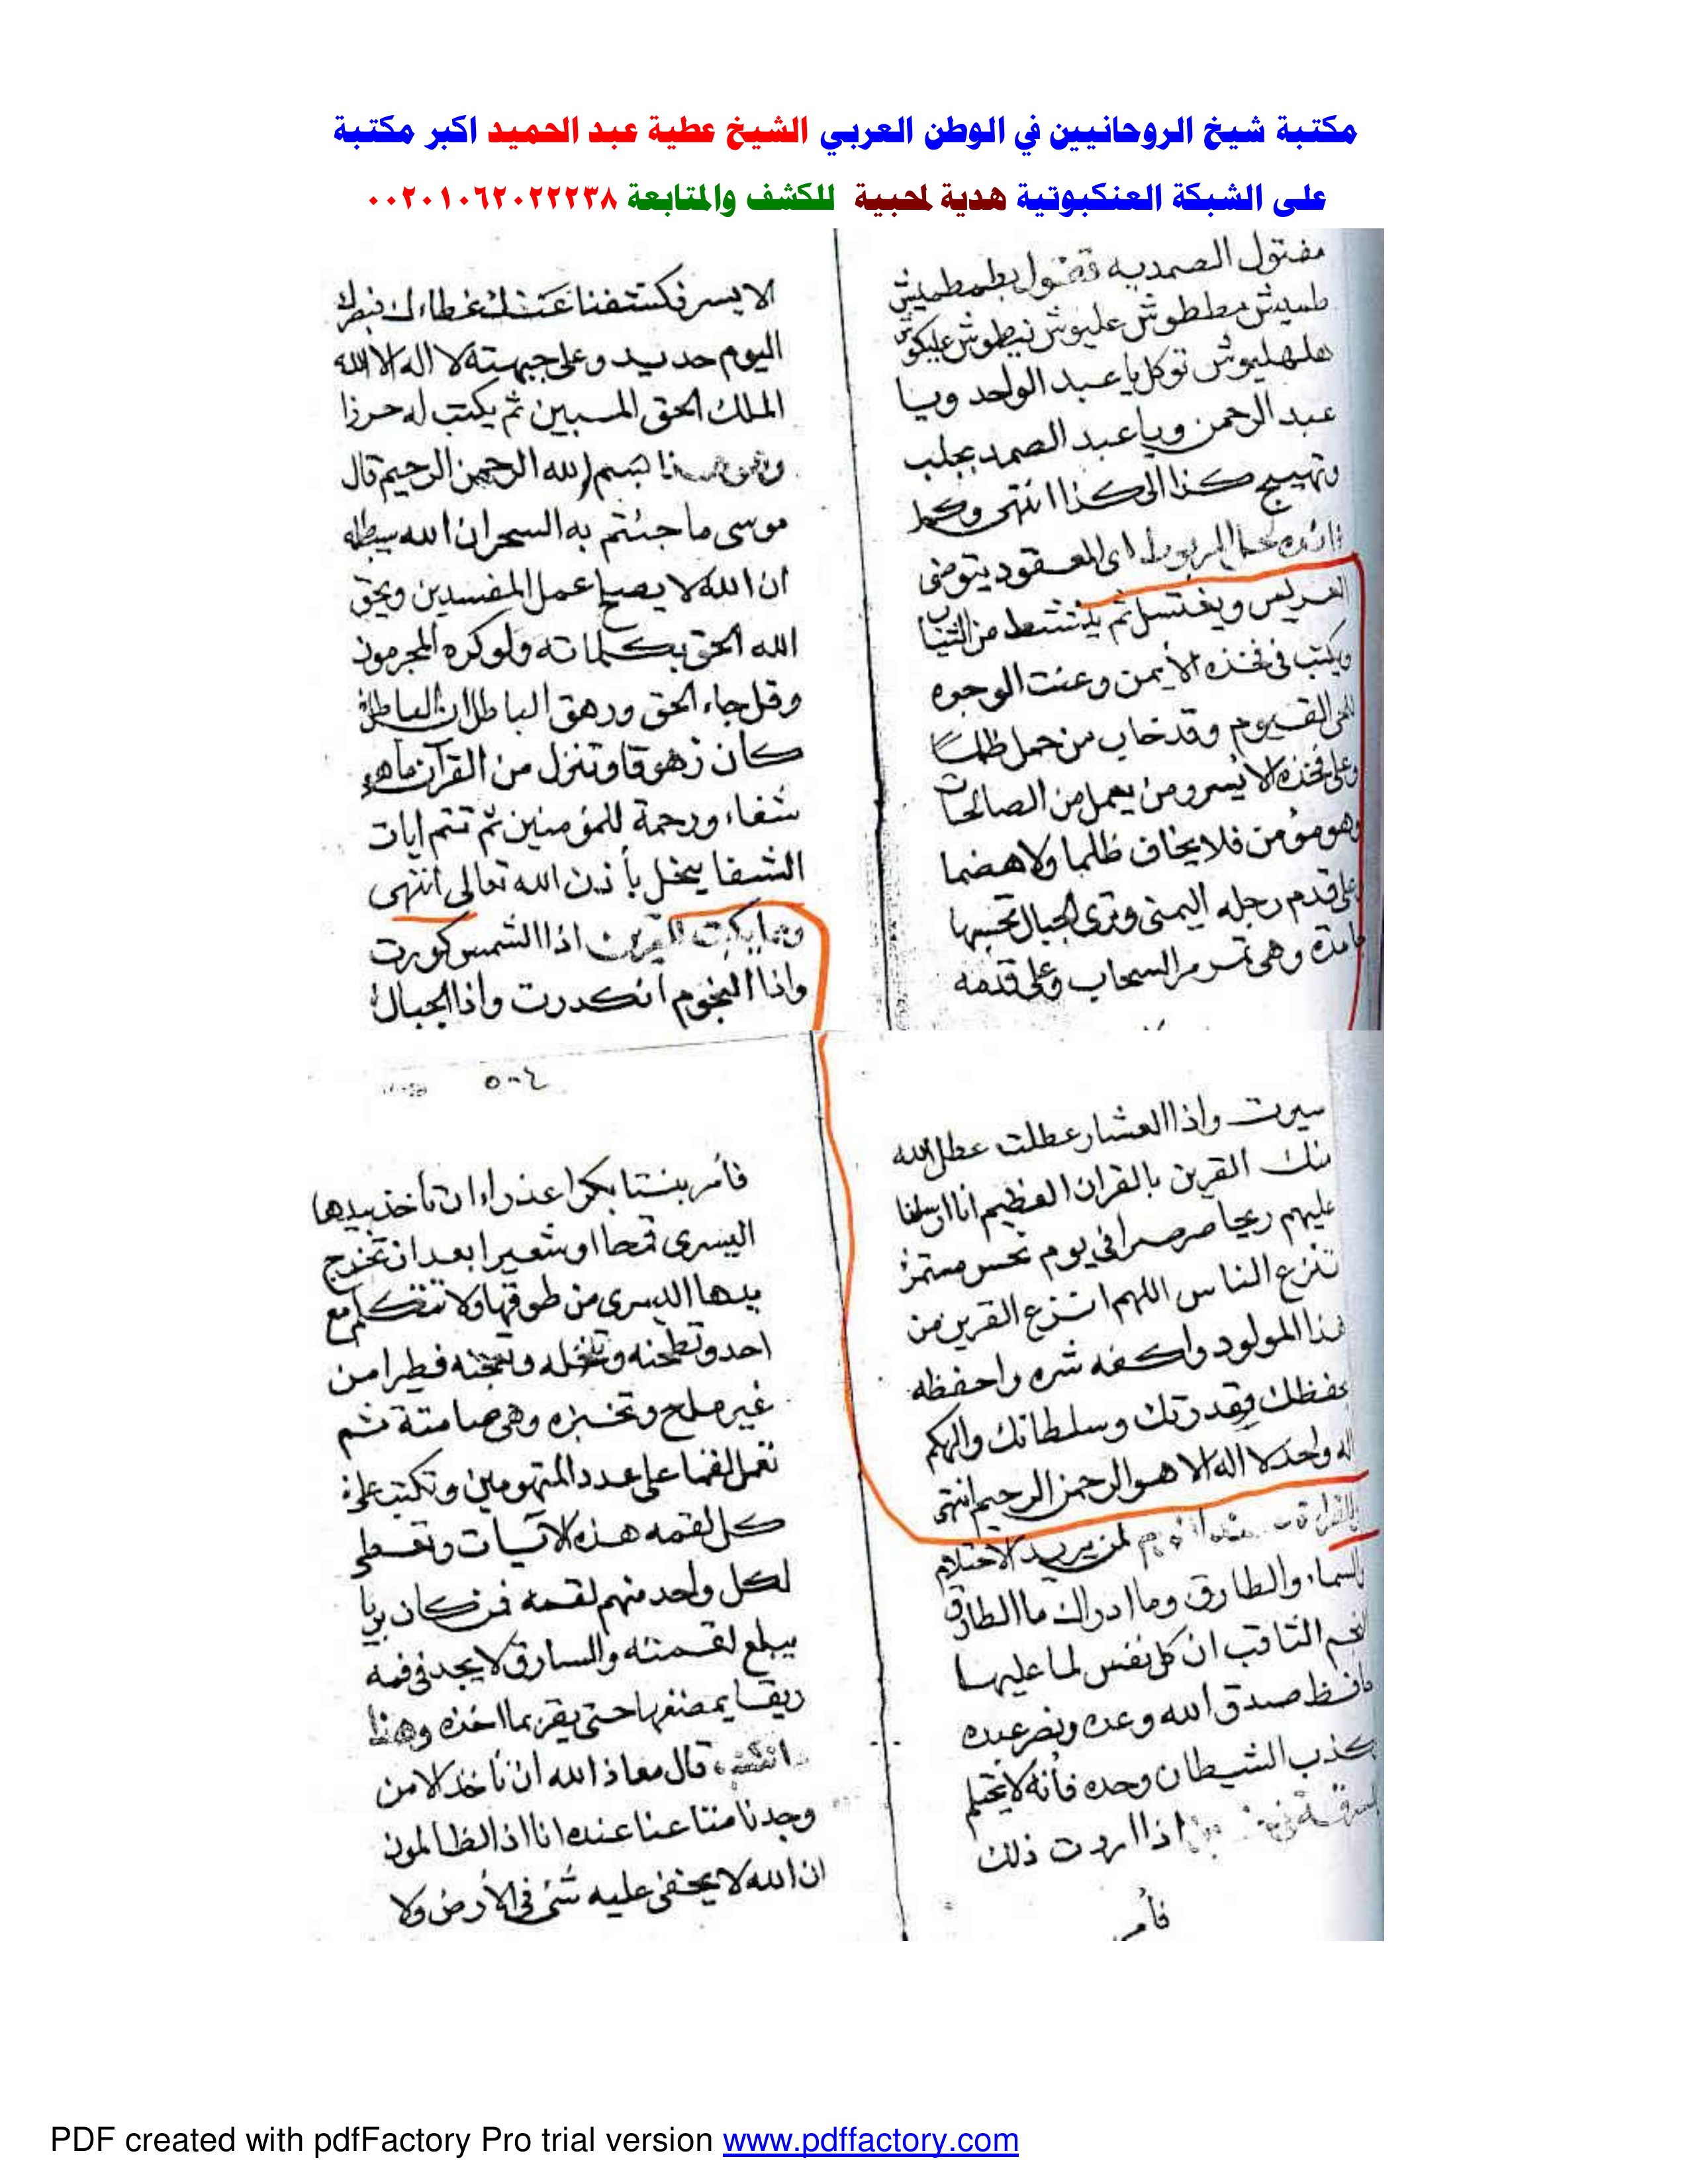 مكتبة شيخ الروحانيين في الوطن العربي الشيخ عطية عبد الحميد اكبر مكتبة
على الشبكة العنكبوتية هدية لمحبية للكشف والمتابعة ٠٠٢٠١٠٦٢٠٢٢٢٣٨
مفتول الصمديه تقول بطمطميش
طميش مططوش عليوش نيطوش عليكوش
هلهليوش توكل يا عبد الواحد ويا
عبد الرحمن ويا عبد الصمد بجلب
وتهييج كذا الى كذا انتهى وكما
المربوط اى المعقود يتوضى
العريس ويغتسل ثم من الثياب
ويكتب فى فخذه الأيمن وعنت الوجوه
للحى القيوم وقد خاب من حمل ظلما
وعلى فخذه الايسر ومن يعمل من الصالحات
وهو مؤمن فلا يخاف ظلما ولا هضما
على قدم رجله اليمنى وترى الجبال تحسبها
جامدة وهى تمر مر السحاب وعلى قدمه
الايسر فكشفنا عنك غطاءك فبصرك
اليوم حديد وعلى جبهته لا اله الا الله
الملك الحق المبين ثم يكتب له حرزا
وهو هذا بسم الله الرحمن الرحيم قال
موسى ما جئتم به السحر ان الله سيبطله
ان الله لا يصلح عمل المفسدين ويحق
الله الحق بكلماته ولو كره المجرمون
وقل جاء الحق وزهق الباطل ان الباطل
كان زهوقا وتنزل من القرآن ما هو
شفاء ورحمة للمؤمنين ثم تتم ايات
الشفا ينحل بأذن الله تعالى انتهى
ومما يكتب للقرين اذا الشمس كورت
واذا النجوم انكدرت واذا الجبال
سيرت واذا العشار عطلت عطل الله
منك القرين بالقران العظيم انا ارسلنا
عليهم ريحا صرصرا فى يوم نحس مستمر
تنزع الناس اللهم انزع القرين من
هذا المولود واكفه شره واحفظه
بحفظك وقدرتك وسلطانك والهكم
اله واحد لا اله الا هو الرحمن الرحيم انتهى
لمن يريد الاحتلام
والسماء والطارق وما ادراك ما الطارق
النجم الثاقب ان كل نفس لما عليها
حافظ صدق الله وعده ونصر عبده
وكذب الشيطان وحده فأنه لا يحتلم
اذا اردت ذلك
فأمر
٥٠٤
فأمر بنتا بكرا عذراء ان تأخذ بيدها
اليسرى قمحا او شعيرا بعد ان تخرج
يدها اليسرى من طوقها ولا تتكلم مع
احد وتطحنه وتنخله وتعجنه فطيرا من
غير ملح وتخبزه وهى صامتة ثم
تعمل لقما على عدد المتهومين وتكتب على
كل لقمه هذه الآيات وتعطى
لكل واحد منهم لقمه فمن كان بريا
يبلع لقمته والسارق لا يجد فى فمه
ريقا يمضغها حتى يقر بما اخذه وهذا
قال معاذ الله ان نأخذ الا من
وجدنا متاعنا عنده انا اذا لظالمون
ان الله لا يخفى عليه شئ فى الأرض ولا
PDF created with pdfFactory Pro trial version www.pdffactory.com